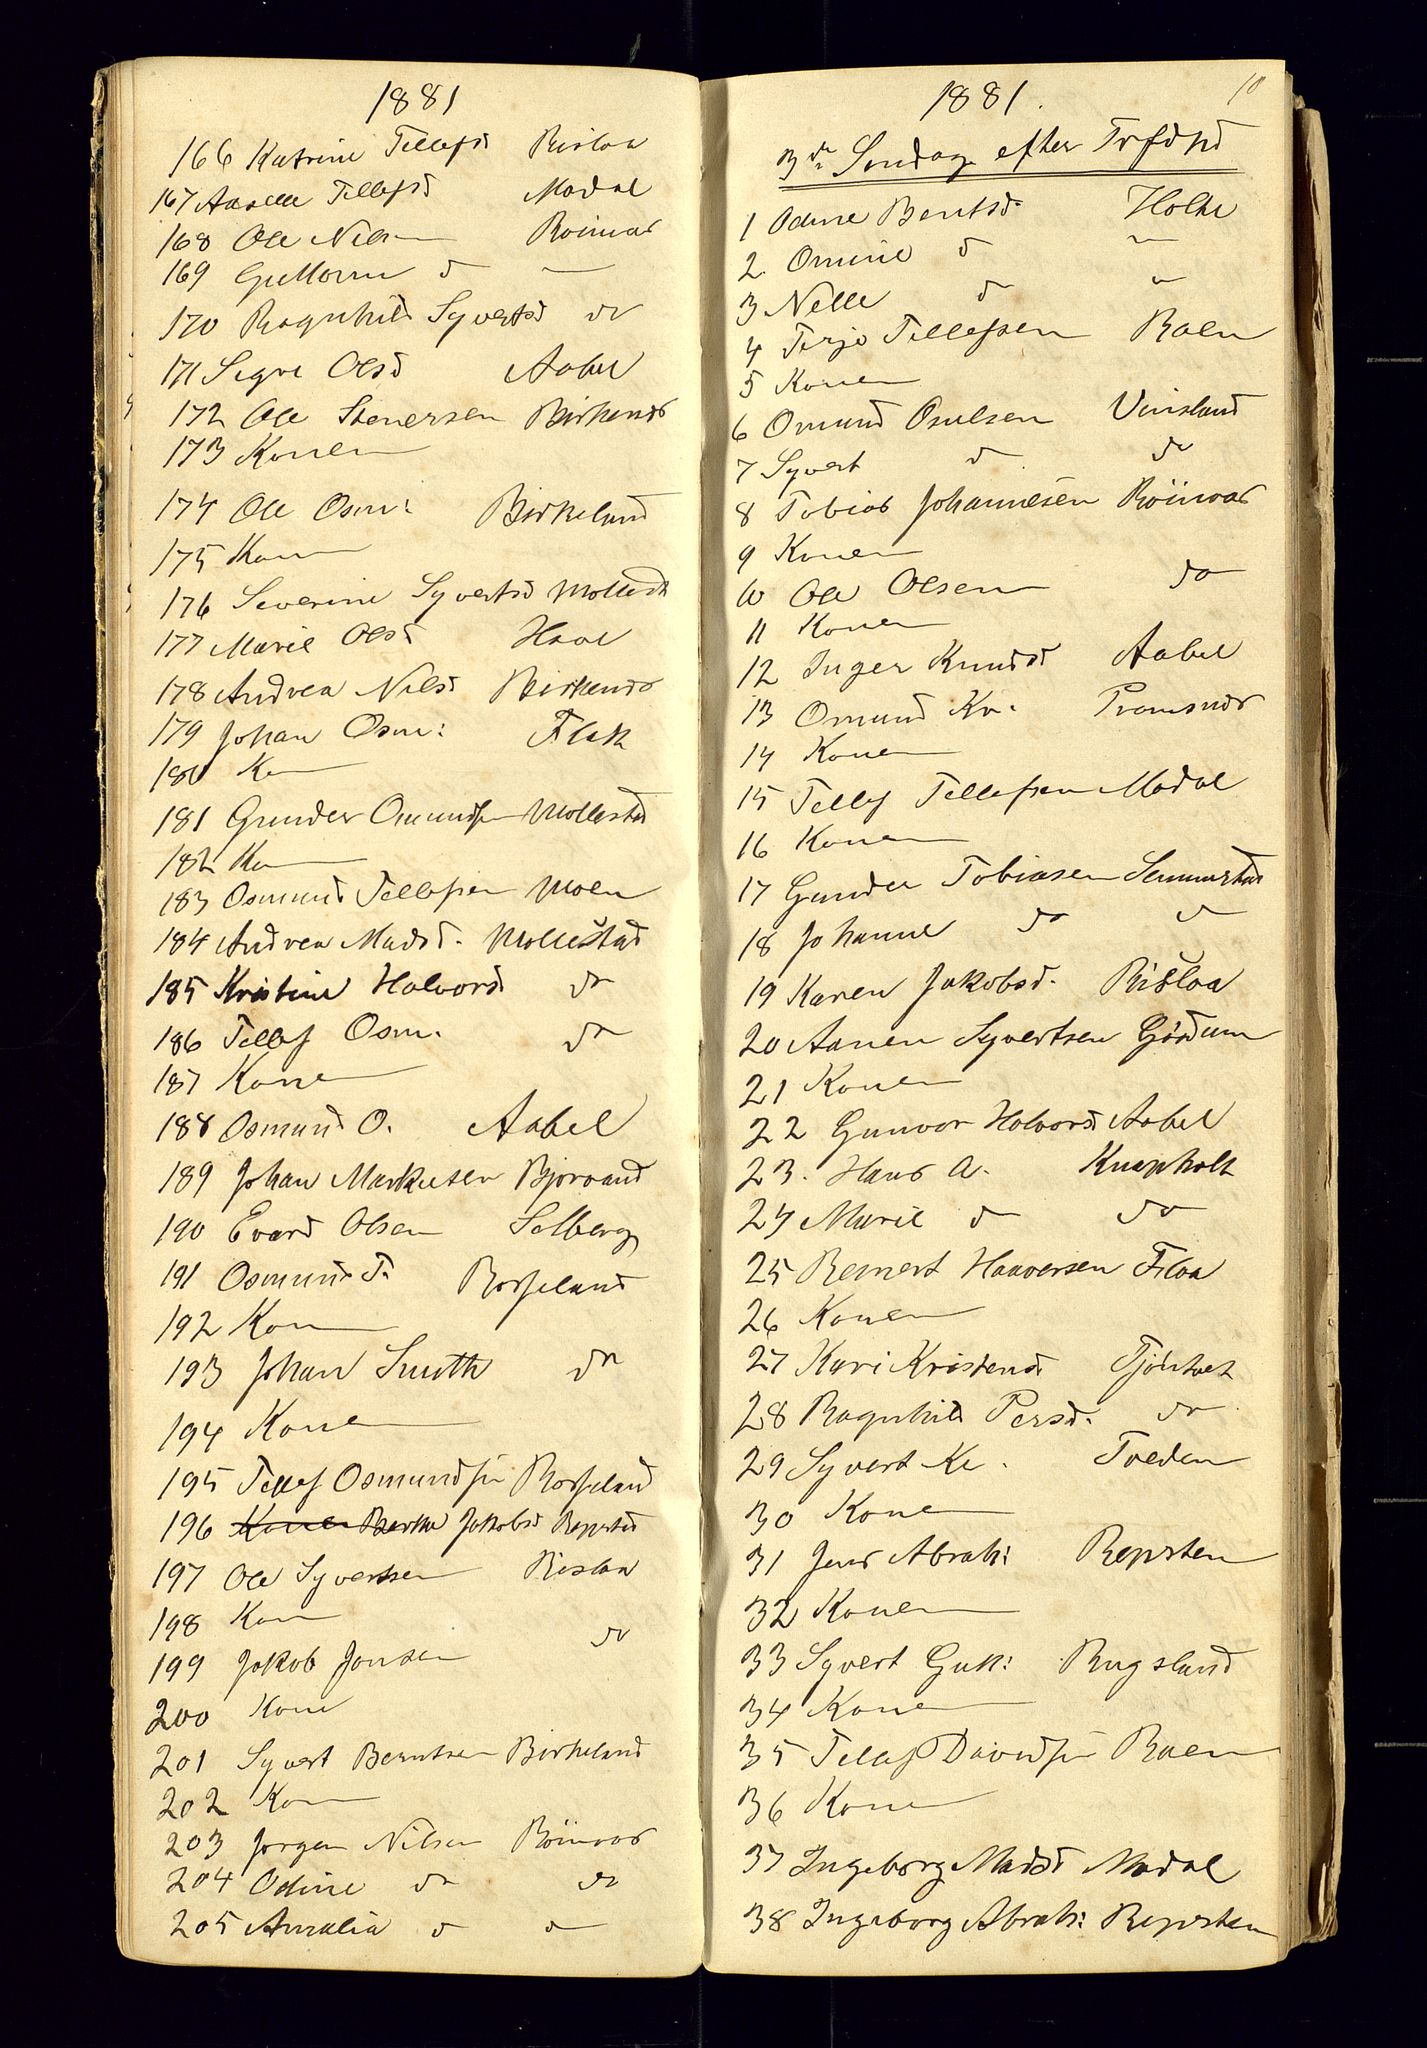 1881
166 Katrine Tellefsd Risloa
167 Aaselle Tellefsd Modal
168 Ole Nilsen Röinaas
169 Guttorm d —
170 Ragnhild Syvertsd do
171 Sigri Olsd Aabel
172 Ole Stenersen Birkenes
173 Konen
174 Ole Osm: Birkeland
175 Kon
176 Severine Syvertsd Mollestd
177 Marie Olsd Haae
178 Andrea Nilsd Birkenes
179 Johan Osm: Flak
180 Ko
181 Gunder Omundsen Mollestad
182 Ko
183 Osmund Tellefsen Moen
184 Andrea Madsd. Mollestad
185 Kristine Halvorsd do
186 Tellef Osm. do
187 Konen
188 Osmund O. Aabel
189 Johan Markusen Bjorvand
190 Evard Olsen Solberg
191 Osmund T. Rosseland
192 Kon
193 Johan Smith do
194 Kone
195 Tellef Osmundsen Rosseland
196 Konen Berthe Jakobsd Repstd
197 Ole Syvertsen Risloa
198 Kon
199 Jakob Jonsen do
200 Kone
201 Syvert Berntsen Birkeland
202 Kon
203 Jorgen Nilsen Röinaas
204 Odine do do
205 Amalia d d
1881. 10
3de Sondag efter Trfdhd
1 Odine Bentsd. Holte
2. Omine d —
3 Nelle d —
4 Terje Tellefsen Raen
5 Konen
6 Omund Osulsen Vinsland
7 Syvert d do
8 Tobias Johannesen Röinaas
9 Konen
10 Ole Olsen do
11 Konen
12 Inger Knudsd Aabel
13 Omund Kr. Pramsnes
14 Konen
15 Tellef Tellefsen Modal
16 Konen
17 Gunder Tobiasen Senumstad
18 Johanne do d
19 Karen Jakobsd. Risloa
20 Aanen Syvertsen Gösdum
21 Konen
22 Gunvor Halvorsd Aabel
23. Hans A. Knapholt
24 Marie d do
25 Reinert Haaversen Floa
26 Konen
27 Kari Kristensd Tjöntvet
28 Ragnhild Persd. do
29 Syvert Kr. Tveden
30 Kone
31 Jens Abrah: Repsten
32 Konen
33 Syvert Gutt: Rugsland
34 Konen
35 Tellef Davidsen Raen
36 Kone
37 Ingeborg Madsd Modal
38 Ingeborg Abrah: Repsten